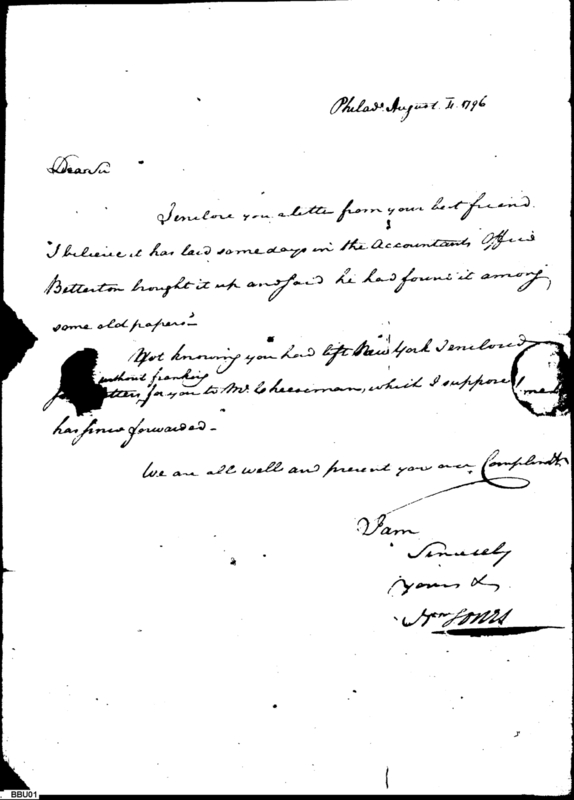 Philada August 11. 1796
Dear Sir
I enclose you a letter from your best friend.
I believe it has laid some days in the Accountants Office
Betterton brought it up and said he had found it among
some old papers -
Not knowing you had left New York I enclosed
without franking
letters for you to Mr. Cheeseman, which I suppose
has since forwarded -
We are all well and present you our Complimts.
I am
Sincerely
Yours &
Jones
BBU01